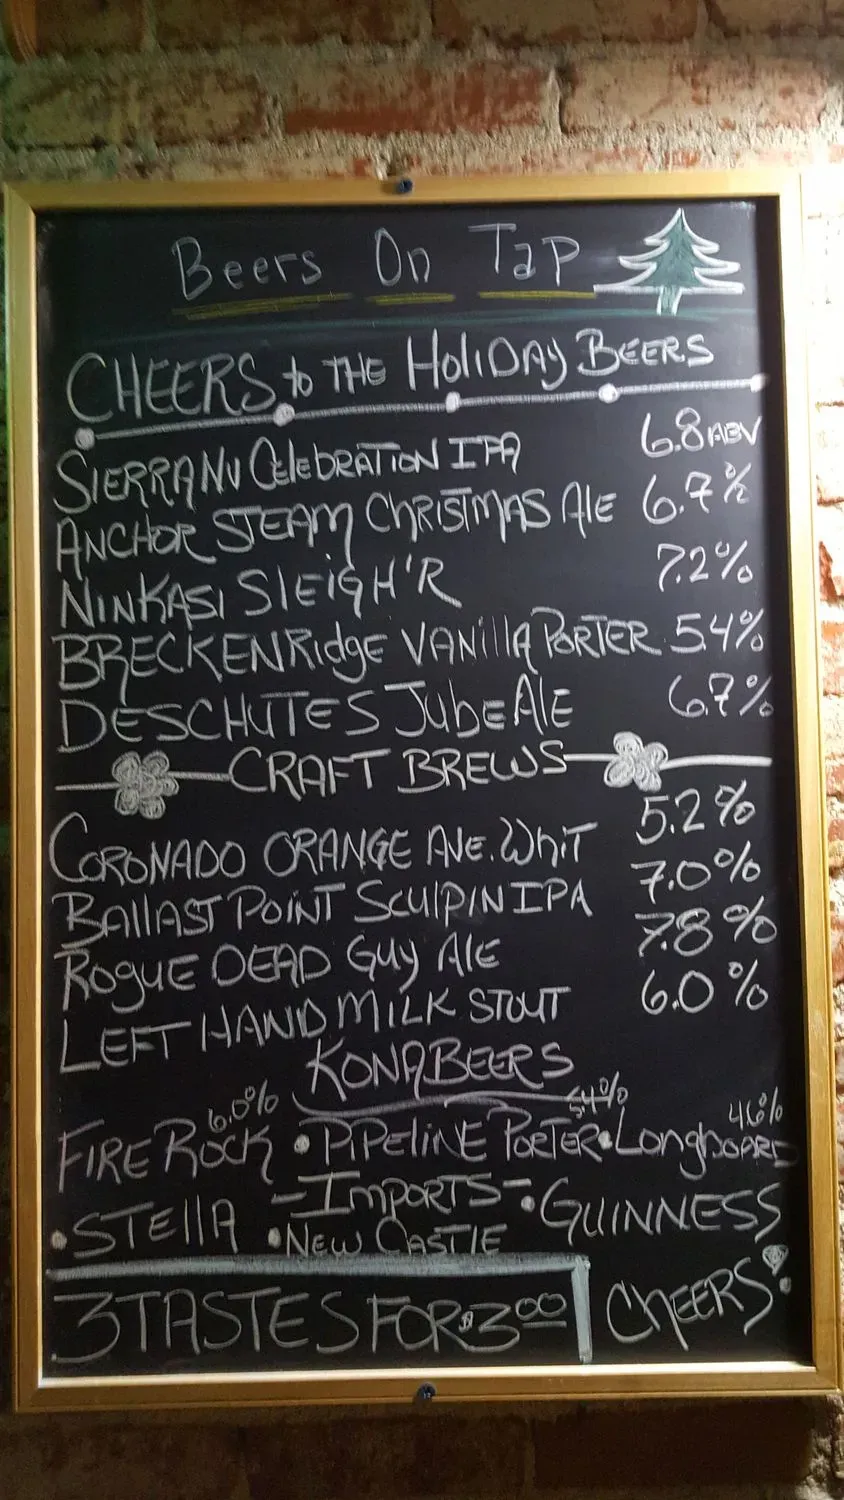 Beers On Tap
CHEERS to THE HOLIDAY BEERS
SIERRA NV CELEBRATION IPA 6.8 ABV
ANCHOR STEAM CHRISTMAS ALE 6.7%
NINKASI SLEIGH'R 7.2%
BRECKENRIDGE VANILLA PORTER 5.4%
DESCHUTES JUBEALE 6.7%
CRAFT BREWS
CORONADO ORANGE AVE. WHIT 5.2%
BALLAST POINT SCULPIN IPA 7.0%
ROGUE DEAD GUY ALE 7.8%
LEFT HAND MILK STOUT 6.0%
KONA BEERS
6.0% 5.4% 4.6%
FIRE ROCK • PIPELINE PORTER • LONGBOARD
-IMPORTS-
• STELLA • NEW CASTLE • GUINNESS
3 TASTES FOR $3.00 CHEERS!